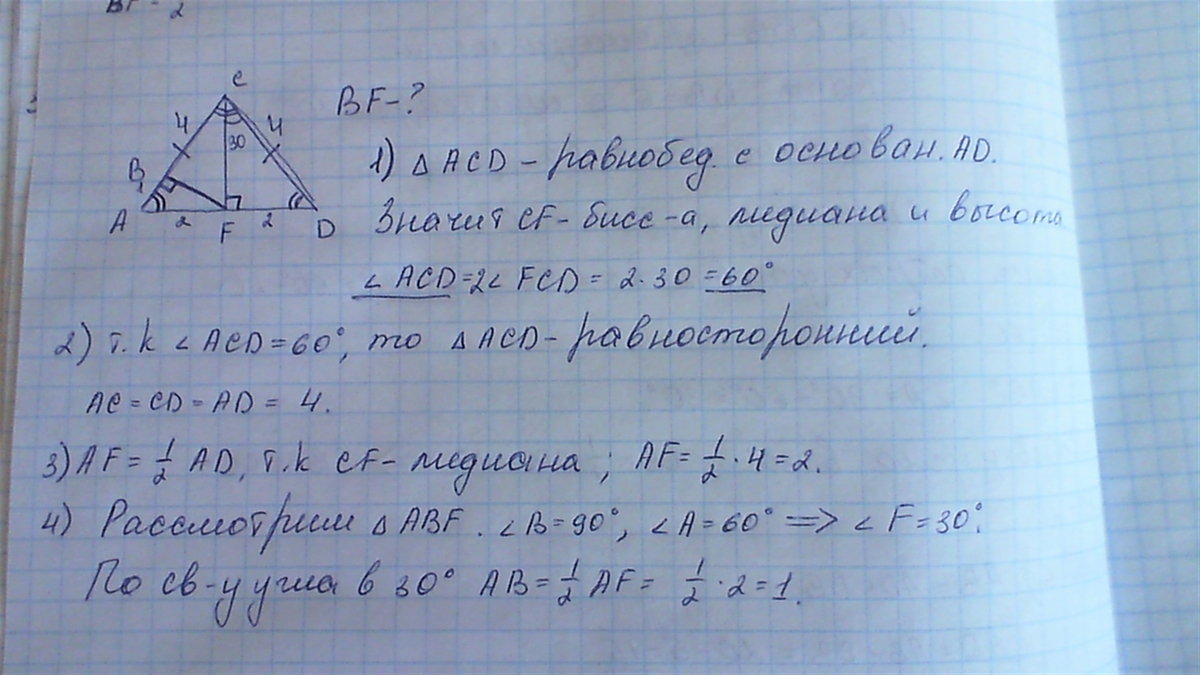 BF-?
C
4
4
30
B
A
2
F
2
D
1) △ ACD – равнобед. с основан. AD.
Значит CF- бисс-а, медиана и высота
∠ ACD = 2∠ FCD = 2·30 = 60°
2) т.к ∠ ACD = 60°, то △ ACD – равносторонний.
AC = CD = AD = 4.
3) AF = 1/2 AD, т.к CF- медиана; AF = 1/2 · 4 = 2.
4) Рассмотрим △ ABF. ∠ B = 90°, ∠ A = 60° => ∠ F = 30°.
По св-у угла в 30° AB = 1/2 AF = 1/2 · 2 = 1.